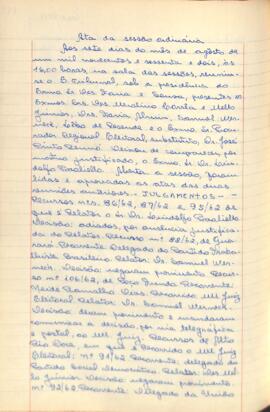 Ata da sessão ordinária
Aos sete dias do mês de agosto de
um mil novecentos e sessenta e dois, às
16,00 horas, na sala das sessões, reuniu-
se o E. Tribunal, sob a presidência do
Exmo. Sr. Des. Faria e Sousa, presentes os
Exmos. Srs. Des. Merolino Corrêa e Mello
Júnior, Drs. Faria Alvim, Samuel Wer-
neck, de Rezende e o Exmo. Sr. Procu-
rador Regional Eleitoral, substituto, Dr. José
Pinto Renó. Deixou de comparecer, por
motivo justificado, o Exmo. Sr. Dr.
Aberta a sessão, foram
lidas e aprovadas as atas das duas
reuniões anteriores. - JULGAMENTOS -
Recursos nrs. 86/62, 87/62 e 93/62 de
que é Relator o Dr.
Decisão: adiados, por ausência justifica-
da do Relator. Recurso nº 88/62, de Gua-
Recorrente Delegado do Partido Traba-
lhista Brasileiro. Relator: Dr. Samuel Wer-
neck. Decisão: negaram provimento. Recur-
so nº 106/62, de Recorrente:
Recorrido MM. Juiz
Eleitoral. Relator: Dr. Samuel Werneck.
Decisão: deram provimento e mandaram
comunicar a decisão, por via telegráfica
e postal, ao MM. Juiz. Recursos de Alto
Rio Doce, em que é Recorrido o MM. Juiz
Eleitoral: nº 91/62 Recorrente: delegado do
Partido Social Democrático. Relator: Des. Mel-
lo Júnior. Decisão: negaram provimento.
nº 92/62 Recorrente: Delegado da União